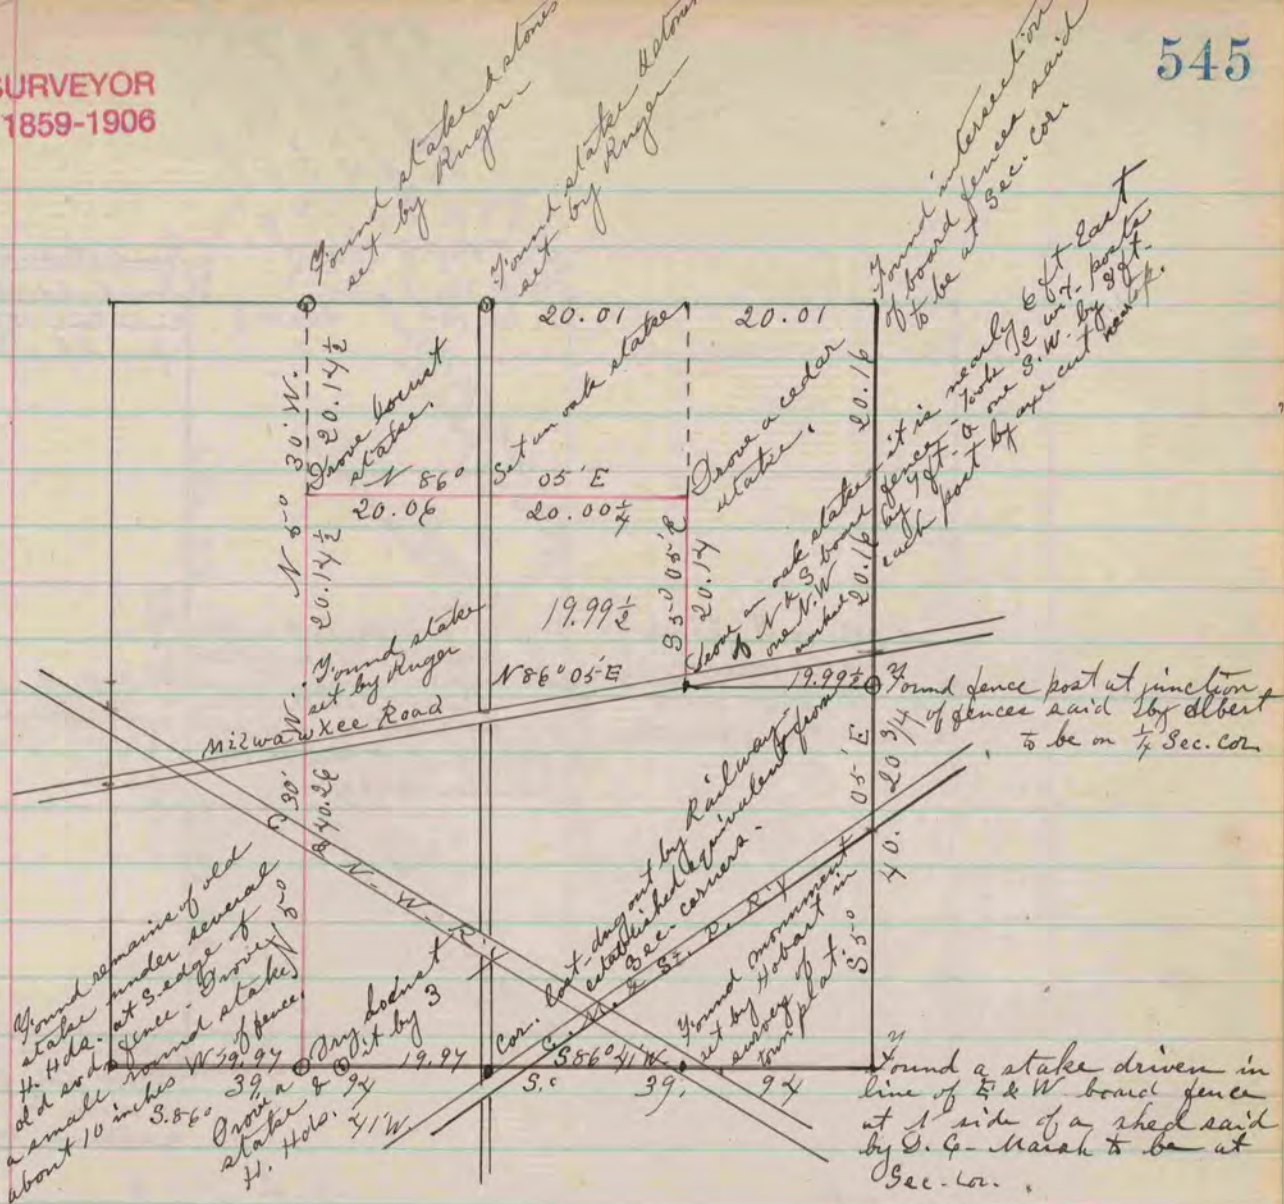 545
SURVEYOR
1859-1906
Found stake & stones
set by Ruger
Found stake & stones
set by Ruger
Found intersection
of board fences said
to be at Sec. Cor.
20.01
20.01
N 5° 30' W.
20.14½
Drove locust
stake.
Set an oak stake
Drove a cedar
stake.
20.16
N 86° 05' E
20.06
20.00¼
20.14½
S 5° 05' E
20.14
20.16
Drove an oak stake it is nearly 6 ft East
of N & S board fence. Took 2 wit. posts
one N.W. by 7 ft. & one S.W. by 8 ft.
marked each post by axe cut near top.
19.99½
N 86° 05' E
19.99½
Found stake
set by Ruger
Milwaukee Road
Found fence post at junction
of fences said by Albert
to be on ¼ Sec. Cor.
N 5° 30' W.
40.26
S 5° 05' E
40. 20 3/4
C. N. W. R'y
C. M. & St. P. R'y
Cor. lost - dug out by Railway -
established equivalent from
Sec. corners.
Found monument
set by Hobart in
survey of
town plat.
Found remains of old
stake under several
H. Hds. at S. edge of
old sod fence - Drove
a small round stake
about 10 inches W. of fence.
19.97
Dry locust
it by 3
19.97
39. 94
S. 86° 41' W.
Drove a
stake &
H. Hds.
S 86° 41' W.
39. 94
Found a stake driven in
line of E & W. board fence
at side of a shed said
by D. G. Marsh to be at
Sec. Cor.